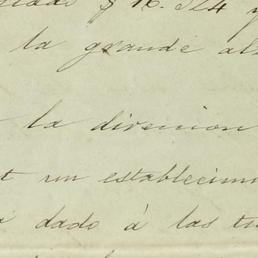 $ 16.324 y
la grande al
la direccion
t un establecim
dado á las tu